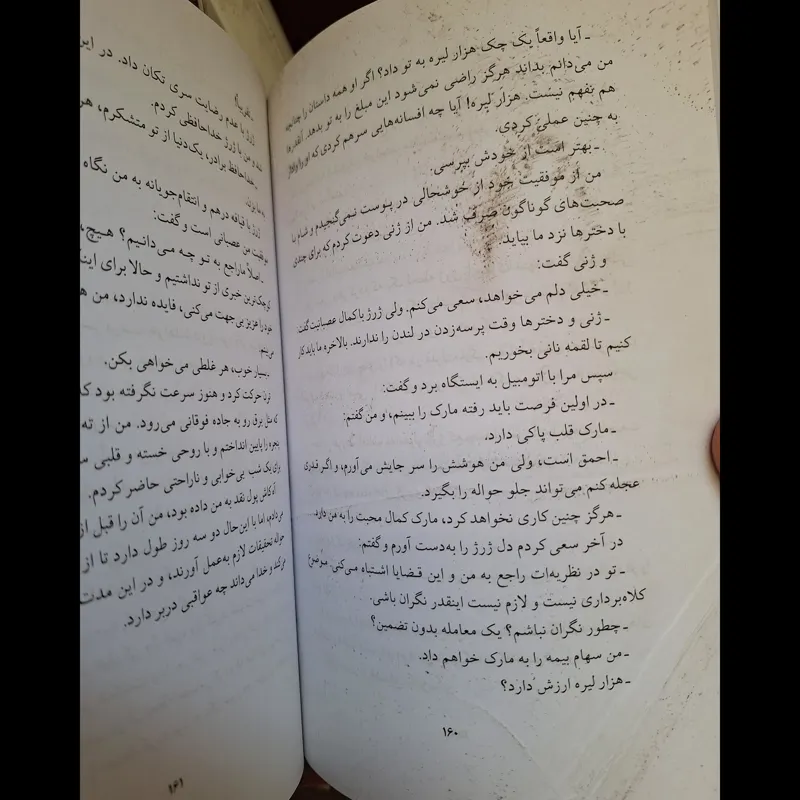 ـ آیا واقعاً یک چک هزار لیره به تو داد؟ اگر او همه داستان را چنانچه
من می‌دانم بداند هرگز راضی نمی‌شود این مبلغ را به تو بدهد.
هم بفهم نیست. هزار لیره! آیا چه افسانه‌هایی سرهم کردی که او را وادار
به چنین عملی کردی.
ـ بهتر است از خودش بپرسی:
من از موفقیت خود از خوشحالی در پوست نمی‌گنجیدم و شام با
صحبت‌های گوناگون صرف شد. من از ژنی دعوت کردم که برای چندی
با دخترها نزد ما بیاید.
و ژنی گفت:
ـ خیلی دلم می‌خواهد، سعی می‌کنم. ولی ژرژ با کمال عصبانیت گفت:
ـ ژنی و دخترها وقت پرسه‌زدن در لندن را ندارند. بالاخره ما باید کار
کنیم تا لقمه نانی بخوریم.
سپس مرا با اتومبیل به ایستگاه برد و گفت:
ـ در اولین فرصت باید رفته مارک را ببینم، و من گفتم:
ـ مارک قلب پاکی دارد.
ـ احمق است، ولی من هوشش را سر جایش می‌آورم، و اگر قدری
عجله کنم می‌تواند جلو حواله را بگیرد.
ـ هرگز چنین کاری نخواهد کرد، مارک کمال محبت را به من دارد.
در آخر سعی کردم دل ژرژ را به‌دست آورم و گفتم:
ـ تو در نظریه‌ات راجع به من و این قضایا اشتباه می‌کنی. موضوع
کلاه‌برداری نیست و لازم نیست اینقدر نگران باشی.
ـ چطور نگران نباشم؟ یک معامله بدون تضمین؟
ـ من سهام بیمه را به مارک خواهم داد.
ـ هزار لیره ارزش دارد؟
۱۶۰
ـ تقریباً!
ژرژ با عدم رضایت سری تکان داد. در این
شد و من با ژرژ خداحافظی کردم.
ـ خداحافظ برادر، یک‌دنیا از تو متشکرم، هر
ژرژ با قیافه درهم و انتقام‌جویانه به من نگاه
موفقیت من عصبانی است و گفت:
ـ اصلاً ما راجع به تو چه می‌دانیم؟ هیچ،
کوچک‌ترین خبری از تو نداشتیم و حالا برای اینکه
خود را عزیز بی‌جهت می‌کنی، فایده ندارد، من
می‌بینم.
ـ بسیار خوب، هر غلطی می‌خواهی بکن.
ترن حرکت کرد و هنوز سرعت نگرفته بود که
که مثل برق رو به جاده فوقانی می‌رود. من از ته
پنجره را پایین انداختم و با روحی خسته و قلبی
برای یک شب بی‌خوابی و ناراحتی حاضر کردم.
آه کاش پول نقد به من داده بود، من آن را قبل از
می‌دادم، اما با این‌حال دو سه روز طول دارد تا از
حواله تحقیقات لازم به‌عمل آورند، و در این مدت
می‌کند و خدا می‌داند چه عواقبی دربر دارد.
۱۶۱